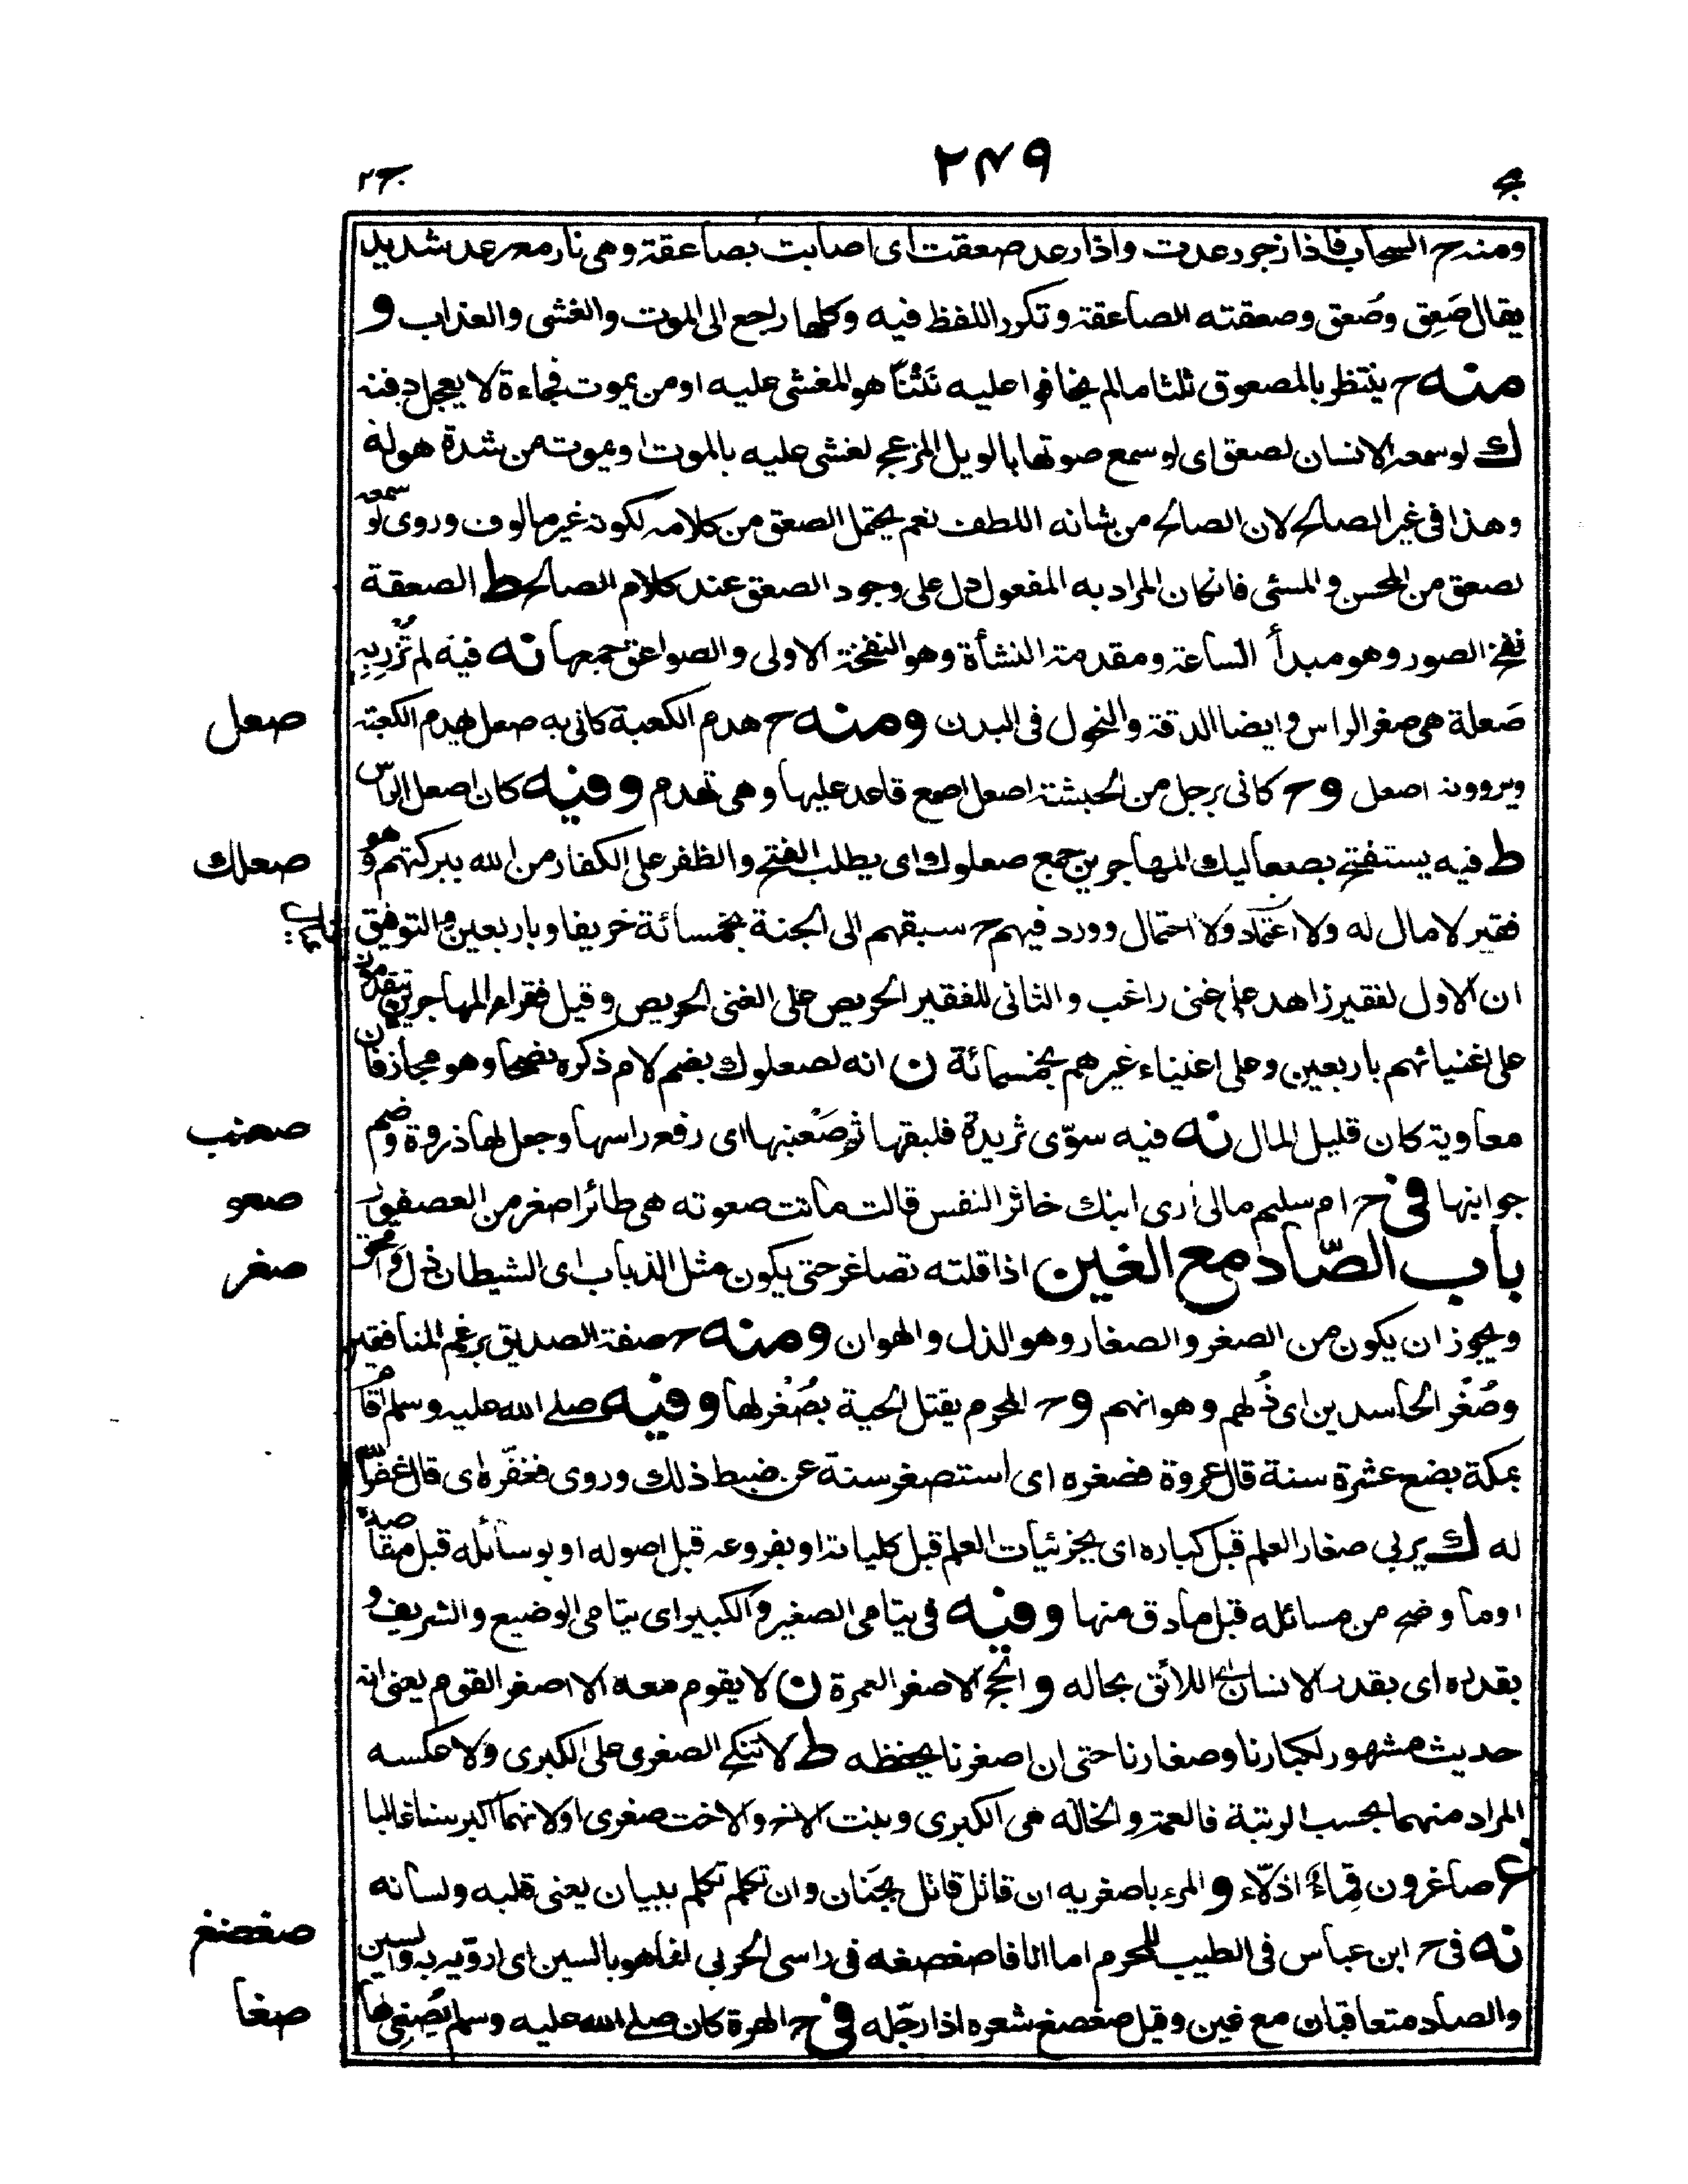 ٢٤٩
ج٢
ومنه ح السحاب فاذا زجر رعدت واذا رعد صعقت اى اصابت بصاعقة وهى نار مع رعد شديد
يقال صَعِق وصُعق وصعقته الصاعقة وتكرر اللفظ فيه وكلها راجع الى الموت والغشى والعذاب و
منه ح ينتظر بالمصعوق ثلثا مالم يخافوا عليه نَتْنًا هو المغشى عليه او من يموت فجاءة لا يعجل دفنه
ك لو سمعه الانسان لصعق اى لو سمع صوتها بالويل المزعج لغشى عليه بالموت او يموت من شدة هوله
وهذا فى غير الصالح لان الصالح من شانه اللطف نعم يحتمل الصعق من كلامه لكونه غير مالوف وروى لو سمعه
لصعق من المحسن والمسئى فان كان المراد به المفعول دل على وجود الصعق عند كلام الصالح ط الصعقة
نفخ الصور وهو مبدأ الساعة ومقدمة النشأة وهو النفخة الاولى والصواعق جمعها نه فيه لم تُزْرِ به
صعل
صَعلة هى صغر الراس وايضا الدقة والنحول فى البدن ومنه ح هدم الكعبة كانى به صعل يهدم الكعبة
ويروونه اصعل و ح كانى برجل من الحبشة اصعل اصمع قاعد عليها وهى تهدم وفيه كان اصعل الراس
صعلك
ط فيه يستفتح بصعاليك المهاجرين جمع صعلوك اى يطلب الفتح والظفر على الكفار من الله ببركتهم وهو
فقير لا مال له ولا اعتماد ولا احتمال وورد فيهم ح سبقهم الى الجنة بخمسائة خريفا وباربعين والتوفيق
ان الاول لفقير زاهد على غنى راغب والثانى للفقير الحريص على الغنى الحريص وقيل فقراء المهاجرين
على اغنيائهم باربعين وعلى اغنياء غيرهم بخمسمائة ن انه لصعلوك بضم لام ذكره بضمها وهو مجاز فان
صعنب
معاوية كان قليل المال نه فيه سوّى ثريدة فلبقها ثم صَعْنبها اى رفع راسها وجعل لها ذروة وضم
صعو
جوانبها فى ح ام سليم مالى ارى ابنك خاثر النفس قالت ماتت صعوته هى طائر اصغر من العصفور
صغر
باب الصّاد مع الغين اذا قلته تصاغر حتى يكون مثل الذباب اى الشيطان ذل وامحق
ويجوز ان يكون من الصغر والصغار وهو الذل والهوان ومنه ح صفة الصديق برغم المنافقين
وصُغْر الحاسدين اى ذُلهم وهوانهم و ح المحرم يقتل الحية بصُغْر لها وفيه صلى الله عليه وسلم اقام
بمكة بضع عشرة سنة قال عروة فصغره اى استصغر سنة عن ضبط ذلك وروى فغفّره اى قال غفر الله
له ك يربى صغار العلم قبل كباره اى بجزئيات العلم قبل كلياته او بفروعه قبل اصوله او بوسائله قبل مقاصده
او ما وضح من مسائله قبل ما دق منها وفيه فى يتامى الصغير والكبير اى يتامى الوضيع والشريف و
بقدره اى بقدر الانسان اى اللائق بحاله و الحج الاصغر العمرة ن لا يقوم معه الا اصغر القوم يعنى انه
حديث مشهور لكبارنا وصغارنا حتى ان اصغرنا يحفظه ط لا تنكح الصغرى على الكبرى ولا عكسه
المراد منهما بحسب الرتبة فالعمة والخالة هى الكبرى وبنت الاخ والاخت صغرى او لانهما اكبر سنا غالبا
غ صاغرون قِماءٌ اذلّاء و المرء باصغريه ان قاتل قاتل بجَنان وان تكلم تكلم ببيان يعنى قلبه ولسانه
صغصغ
نه فى ح ابن عباس فى الطيب للمحرم اما انا فاصغصغه فى راسى الحربى انما هو بالسين اى ارويه به والسين
صغا
والصاد متعاقبان مع غين وقيل صغصغ شعره اذا رجّله فى ح الهرة كان صلى الله عليه وسلم يُصْغِى لها